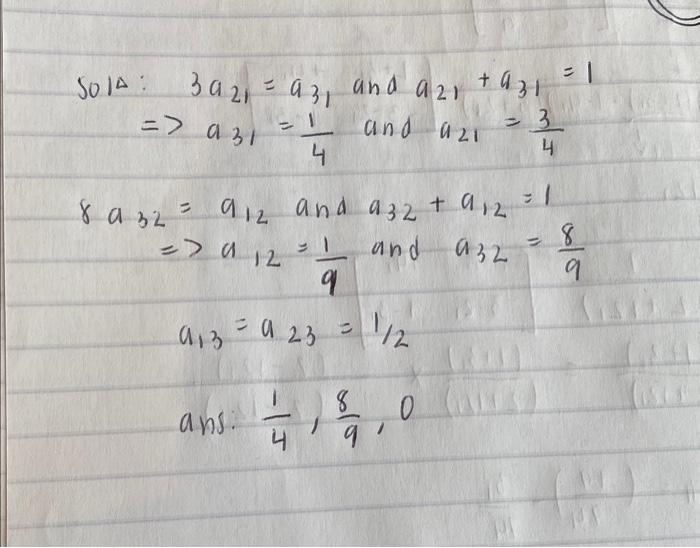 Soln: 3a21 = a31 and a21 + a31 = 1
=> a31 = 1/4 and a21 = 3/4
8a32 = a12 and a32 + a12 = 1
=> a12 = 1/9 and a32 = 8/9
a13 = a23 = 1/2
ans: 1/4, 8/9, 0